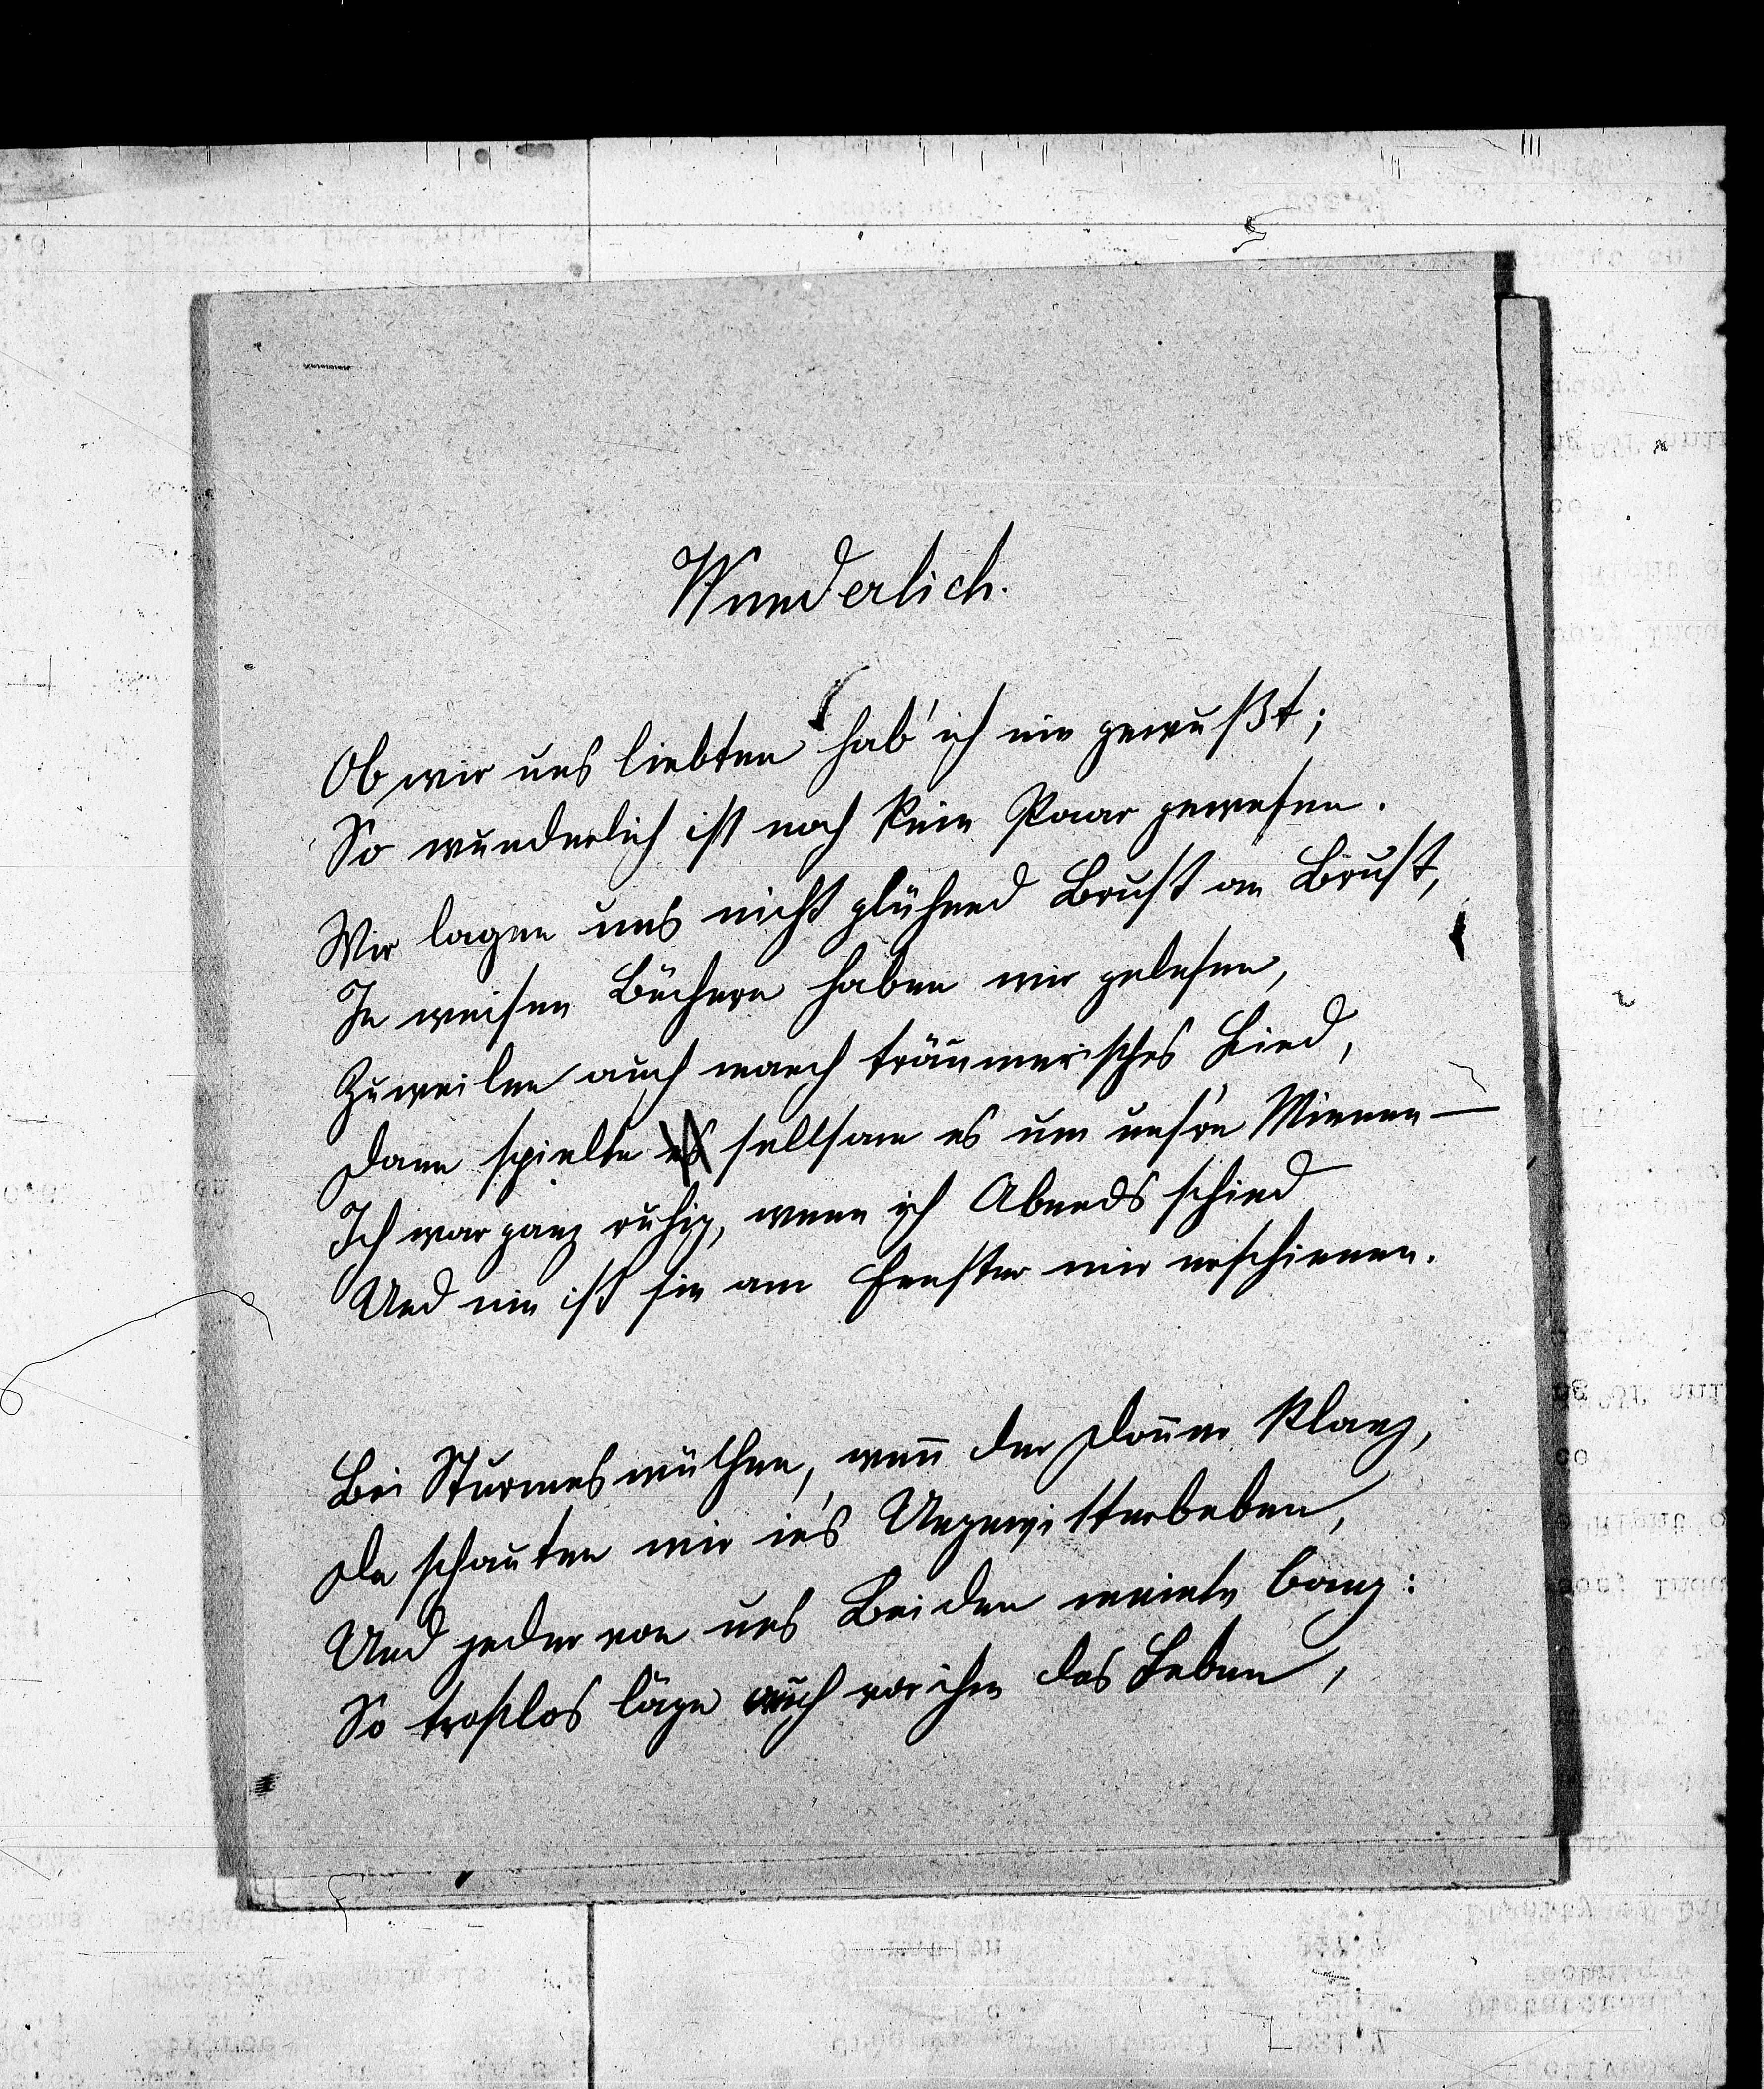 Wunderlich.
Ob wir uns liebten, hab' ich nie gewußt;
So wunderlich ist noch kein Paar gewesen.
Wir lagen uns nicht glühend Brust an Brust,
In weisen Büchern haben wir gelesen,
Zuweilen auch manch träumerisches Lied,
Dann spielte es seltsam es um uns're Mienen—
Ich war ganz ruhig, wenn ich Abends schied
Und nie ist sie am Fenster mir erschienen.
Bei Sturmeswüthen, wen̄ der Don̄er klang,
Da schauten wir in's Ungewitterbeben,
Und jeder von uns Beiden meinte bang:
So trostlos läge auch vor ihm das Leben,